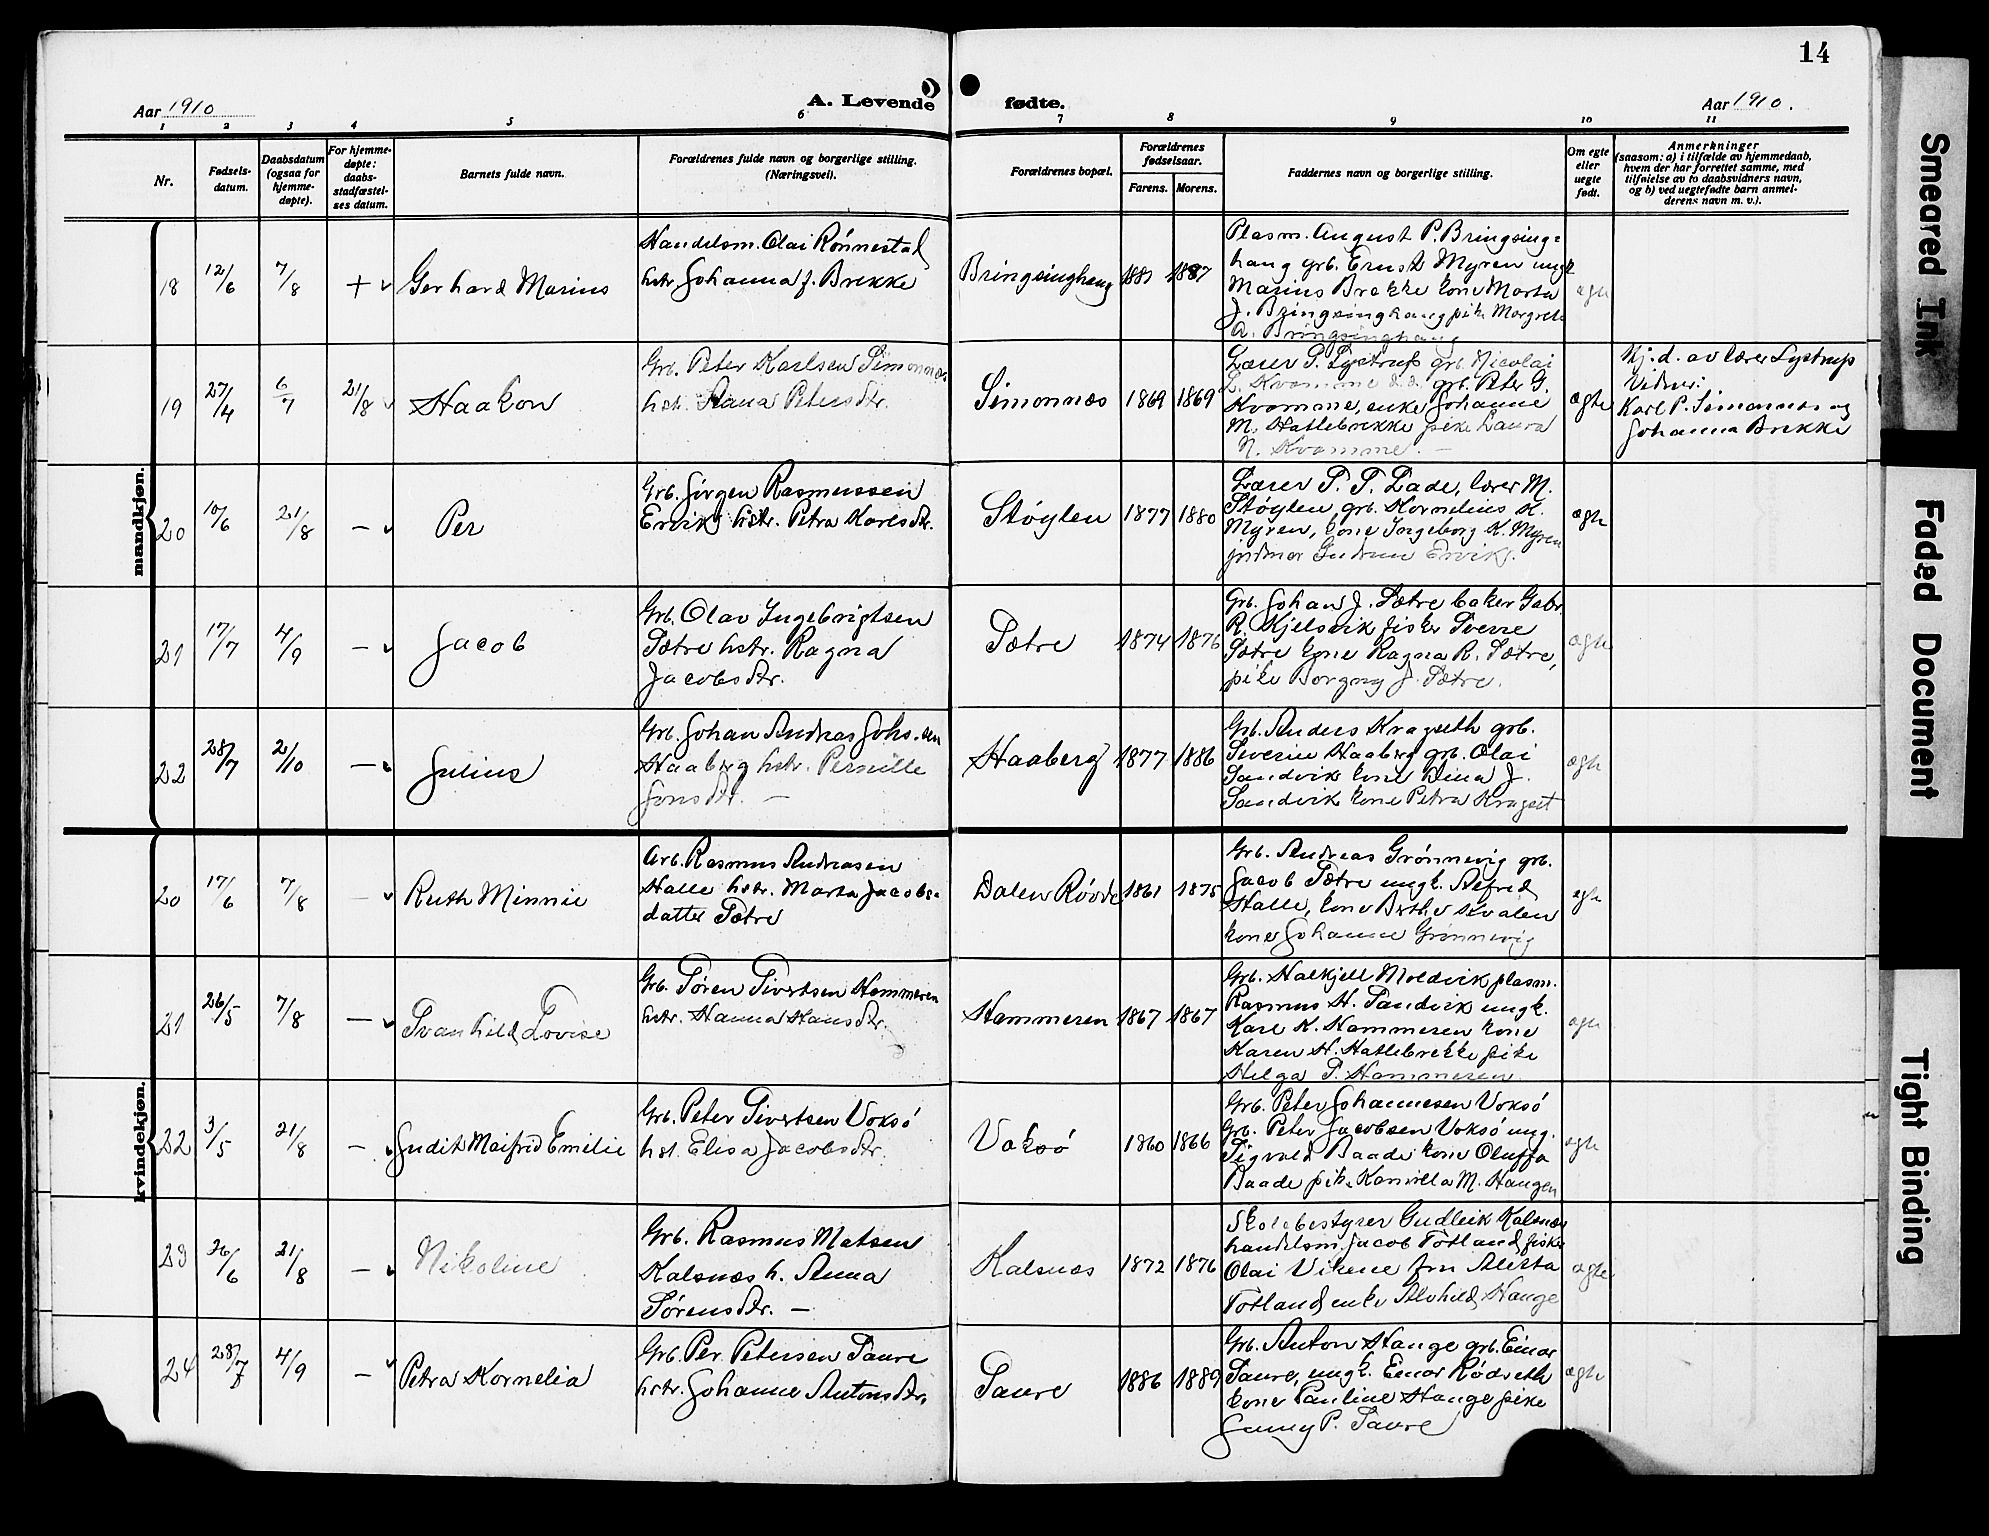 14
Aar 1910
A. Levende fødte.
Aar 1910.
1 2 3 4 5 6 7 8 9 10 11
Nr.
Fødsels-
datum.
Daabsdatum
(ogsaa for
hjemme-
døpte).
For hjemme-
døpte:
daabs-
stadfæstel-
ses datum.
Barnets fulde navn.
Forældrenes fulde navn og borgerlige stilling.
(Næringsvei).
Forældrenes bopæl.
Forældrenes
fødselsaar.
Farens. Morens.
Faddernes navn og borgerlige stilling.
Om egte
eller
uegte
født.
Anmerkninger
(saasom: a) i tilfælde av hjemmedaab,
hvem der har forrettet samme, med
tilføielse av to daabsvidners navn,
og b) ved uegtefødte barn anmel-
derens navn m. v.).
mandkjøn.
18 12/6 7/8 + Gerhard Marius
Handelsm. Olai Rønnestad
hstr. Johanna f. Brekke
Bringsinghaug 1887
Plasm. August P. Bringsing-
haug grb. Ernst Myren ungk
Marius Brekke kone Marta
J. Bringsinghaug pike Margrete
A. Bringsinghaug
ægte
19 27/4 6/7 21/8 Haakon
Grb. Peter Karlsen Simonnæs
hst. Hana Petersdtr.
Simonnæs 1869 1869
Lærer P. Lystrup grb. Nicolai
Kvamme grb. Peter G.
Kvamme, enke Johanne
M. Hatlebrekke pike Laura
N. Kvamme. —
ægte
Hj. d. av lærer Lystrup
Vidner:
Karl P. Simonnæs og
Johanna Brekke
20 10/6 21/8 — Per
Grb. Jørgen Rasmussen
Ervik hstr. Petra Karlsdtr.
Støylen 1877 1880
Lærer P. P. Lade, lærer M.
Støylen grb. Kornelius K.
Myren, kone Ingeborg K. Myren
jordmor Gudrun Ervik.
ægte
21 17/7 4/9 — Jacob
Grb. Olav Ingebrigtsen
Sætre hstr. Ragna
Jacobsdtr.
Sætre 1874 1876
Grb. Johan J. Sætre baker Gabr.
R. Kjelsvik fisker Sverre
Sætre kone Ragna R. Sætre,
pike Borgny J. Sætre.
ægte
22 28/7 2/10 — Julius
Grb. Johan Andreas Johs.sen
Haaberg hstr. Pernille
Jonsdtr. —
Haaberg 1877 1886
Grb. Anders Kragseth grb.
Severin Haaberg grb. Olai
Sandvik kone Dina J.
Sandvik kone Petra Kragset
ægte
kvindekjøn.
20 17/6 7/8 — Ruth Minnie
Arb. Rasmus Andreasen
Halle hstr. Marta Jacobs-
datter Sætre
Dalen Røvde 1861 1875
Grb. Andreas Grønnevig grb.
Jacob Sætre ungk. Alfred
Halle, kone Berthe Kvalen
kone Johanne Grønnevig
egte
21 26/5 7/8 — Svanhild Lovise
Grb. Søren Sivertsen Hammeren
hstr. Hanna Hansdtr.
Hammeren 1867 1867
Grb. Halkjell Moldvik plasm.
Rasmus H. Sandvik ungk.
Karl K. Hammeren kone
Karen H. Hatlebrekke pike
Helga S. Hammeren
ægte
22 3/5 21/8 — Judith Maifrid Emilie
Grb. Peter Sivertsen Voksø
hst. Elisa Jacobsdtr.
Voksø 1860 1866
Grb. Peter Johannesen Voksø
Grb. Peter Jacobsen Voksø ung.
Sigvald Baade kone Oluffa
Baade pike Kamilla M. Haugen
ægte
23 26/6 21/8 — Nikoline
Grb. Rasmus Matsen
Kalsnæs h. Anna
Sørensdtr. —
Kalsnæs 1872 1876
Skolebestyrer Gudleik Kalsnæs
handelsm. Jacob Totland fisker
Olai Vikene fru Aletta
Totland enke Alvhild Hauge
ægte
24 28/7 4/9 — Petra Kornelia
Grb. Per Petersen Saure
hstr. Johanne Antonsdtr.
Saure 1886 1889
Grb. Anton Hauge grb. Einar
Saure, ungk. Einar Rødseth
kone Pauline Hauge pike
Jenny P. Saure
ægte
Smeared Ink
Faded Document
Tight Binding